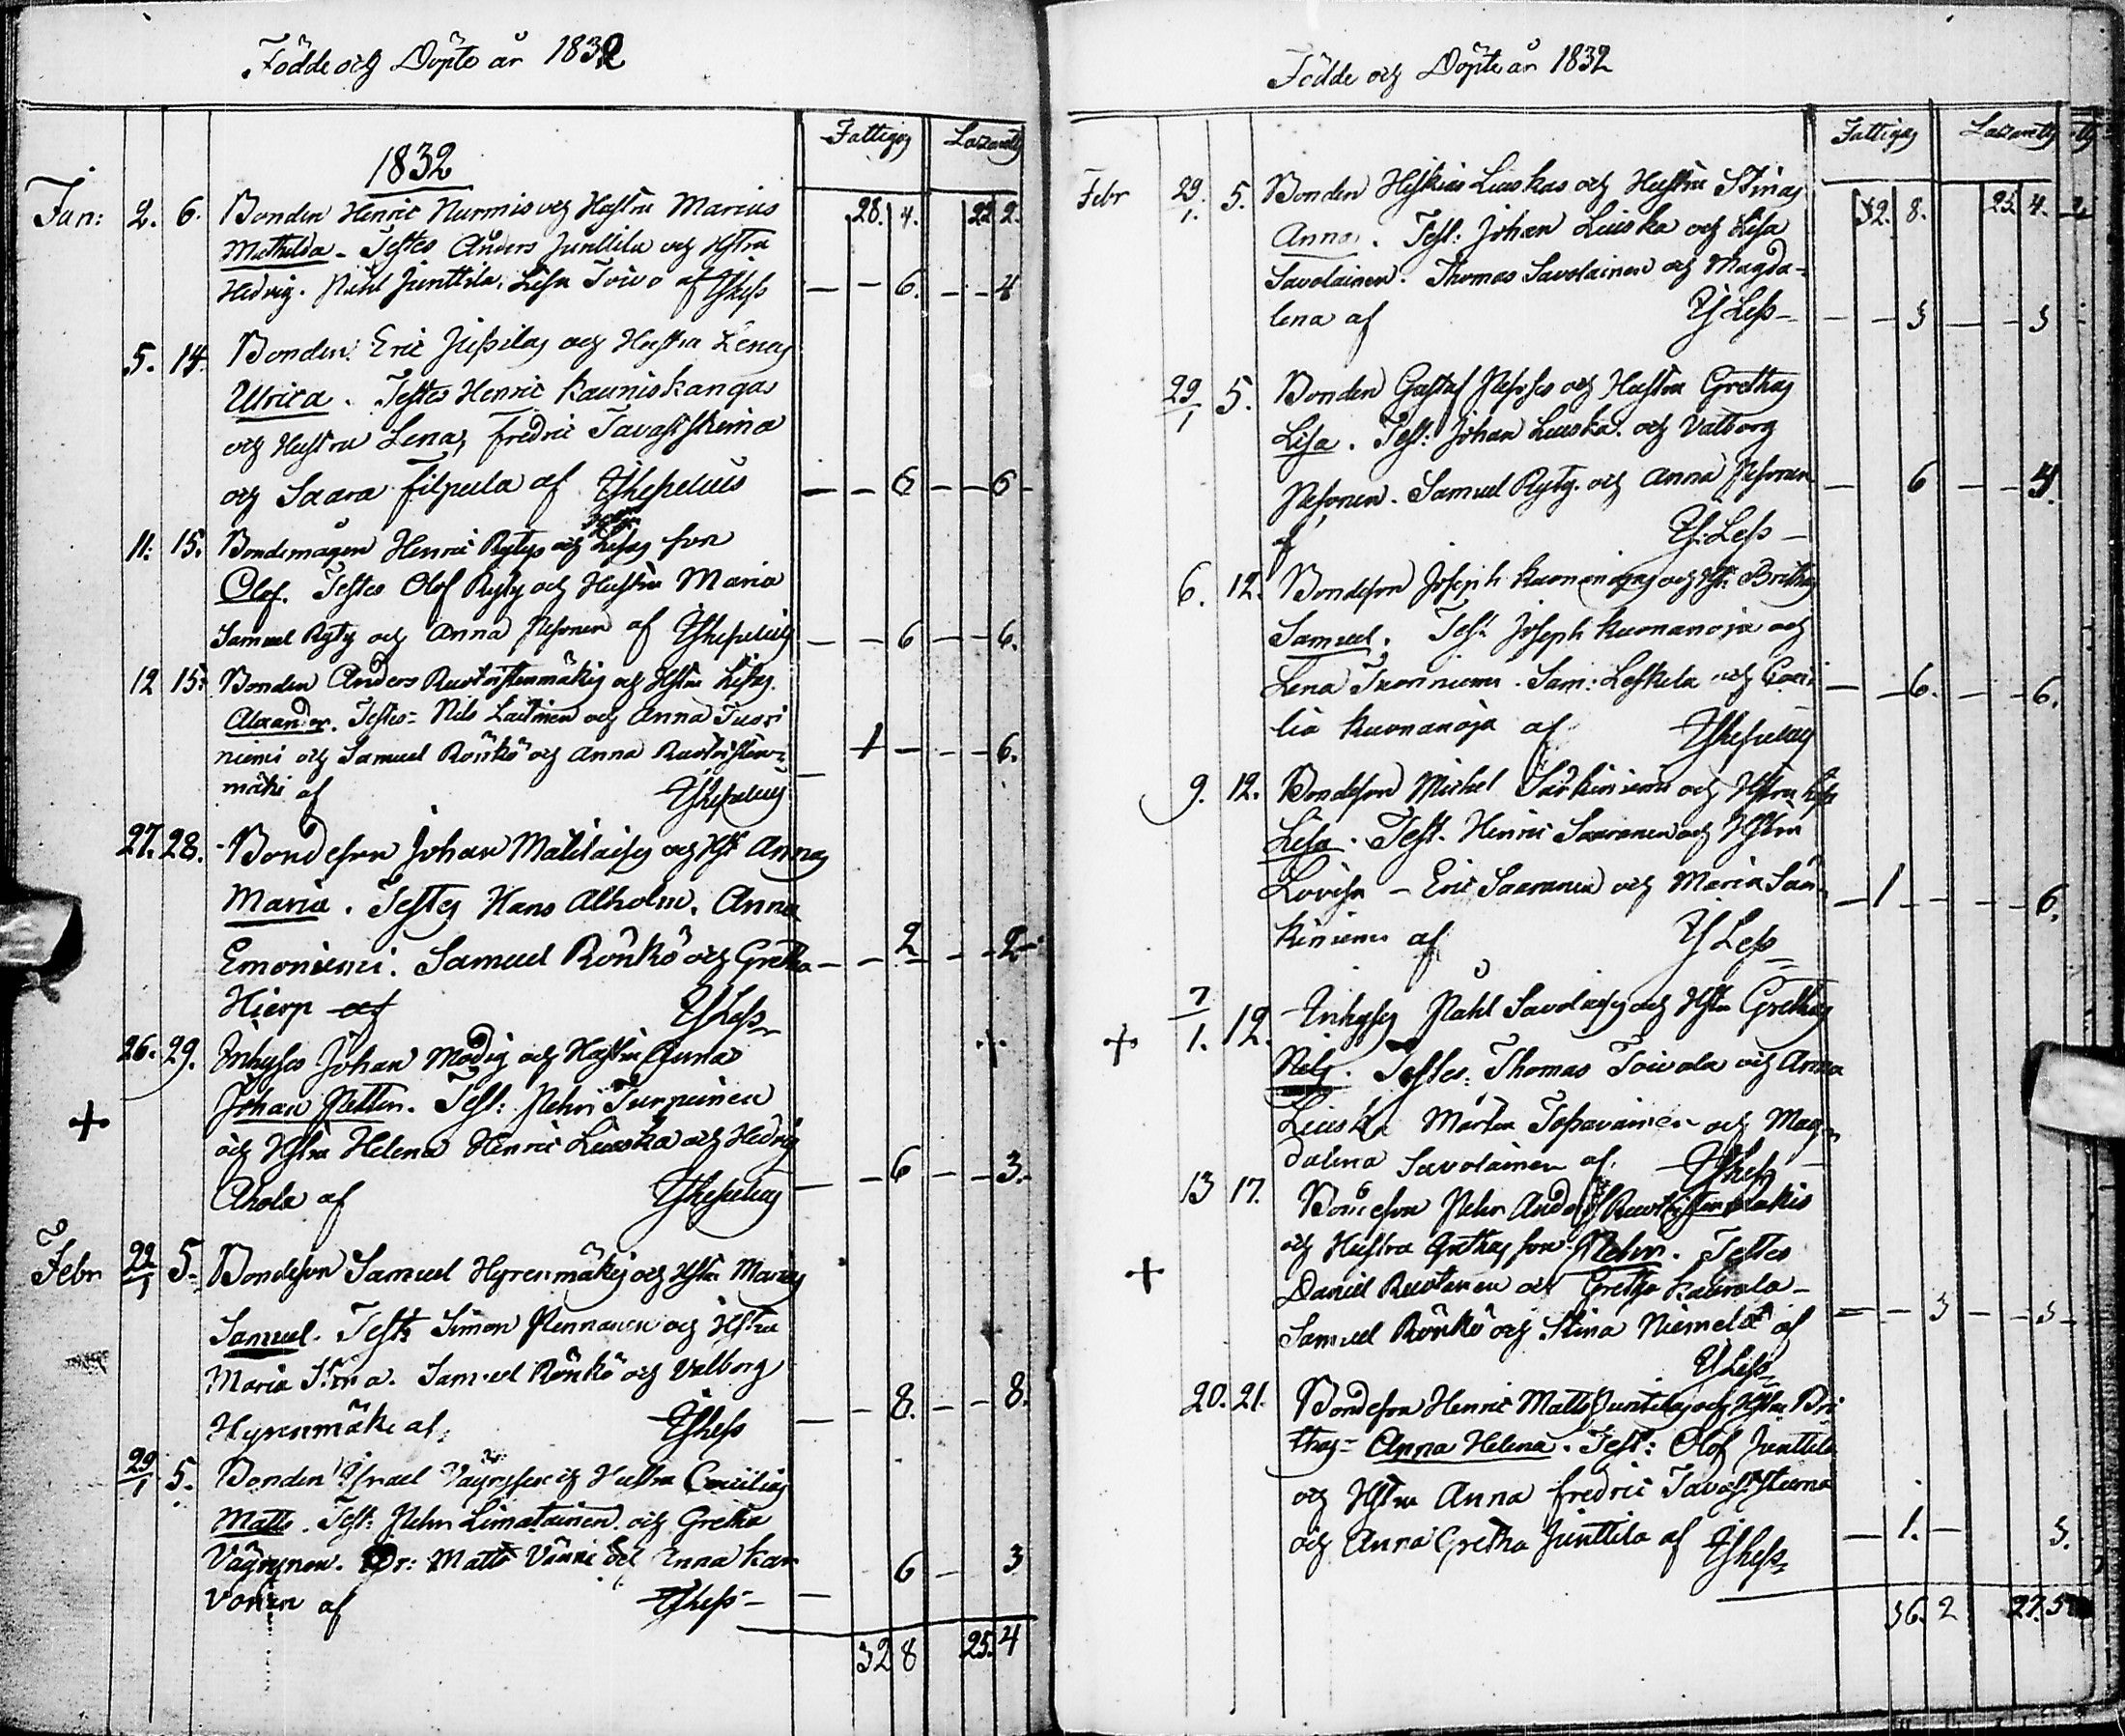 Födde och Döpte år 1832
Fattigs Lazaretts
1832
Jan: 2. 6. Bonden Henric Nurmis och Hustru Marias 28. 4. 22 2.
Mathilda - Testes Anders Junttila och Hstru
Hedvig. Påhl Junttila, Lisa Toivo af YLess — — 6. — — 4
5. 14. Bonden Eric Jussilas och Hustru Lenas
Ulrica. Testes Henric Kauniskangas
och Hustru Lena, Fredric Tavaststierna
och Saara Filpula af — — 6 — — 6
11: 15. Bondemågen Henric Rytys och Lisas son
Olof. Testes Olof Ryty och Hustru Maria
Samuel Ryty och Anna Pesonen af — — 6 — — 6.
12 15. Bonden Anders Ruotoistenmäkis och Hstru Lisas
Alexander. Testes Nils Laitinen och Anna Tuori
niemi och Samuel Rönkö och Anna Ruotoisten- 1 — — — 6.
mäki af
27. 28. Bondeson Johan Matilaises och Hst Annas
Maria. Testes Hans Alholm. Anna
Emoniemi. Samuel Rönkö och Gretha — — 2 — — 2
Hierp af YLess
26. 29. Inhyses Johan Modig och Hustru Anna +
Johan Petter. Test: Pehr Turpeinen
+
och Hstru Helena Henric Liuska och Hedvig
Ahola af — — 6 — — 3.
Febr 22/1 5. Bondeson Samuel Hyrenmäkis och Hstru Marias
Samuel. Test: Simon Pennanen och Hstru
Maria Stina. Samuel Rönkö och Valborg
Hyrenmäki af YLess — — 8. — — 8.
29/1 5. Bonden Israel Väyryses och Hustru Cecilias
Matts. Test: Pehr Limatainen och Gretha
Väyrynen. Matts och Anna Kar 6 — 3
vonen af YLess —
32 8 25. 4
Födde och Döpte år 1832
Fattigs Lazaretts
Febr 29/1. 5. Bonden Hiskias Liuskas och Hustru Stinas 32. 8. 25 4.
Anna. Test: Johan Liuska och Lisa
Savolainen. Thomas Savolainen och Magda-
lena af YLess — — 3 — — 3
29/1 5. Bonden Gustaf Pesoses och Hustru Grethas
Lisa. Test: Johan Liuska och Valborg
Pesonen. Samuel Ryty och Anna Pesonen — 6 — — 4.
af YLess —
6. 12. Bondeson Joseph Kuonanojas och Hst: Brithas
Samuel. Test: Joseph Kuonanoja och
Lena Sam: Leskelä och Ceci — — 6. — — 6.
lia Kuonanoja af
9. 12. Bondeson Michel Särkiniemi och Hstru
Lisa. Test. Henric Saaranen och Hstru
Lovisa — Eric Saaranen och Maria Sär- — 1 — — — 6.
kiniemi af YLess
7/1. 12. Inhyses Påhl Savolaises och Hstru Grethas
+
Nils. Testes: Thomas Toivola och Anna
Liuska Mårten Tossavainen och Mag-
dalena Savolainen af. YLess —
13 17. Bondeson Pehr Anders Ruotoistenmäkis
och Hustru Grethas son Pehr. Testes
+
Daniel Ruotanen och Gretha Kaurala —
Samuel Rönkö och Stina Niemelä af — — 3 — — 3
YLess
20. 21. Bondeson Henric Matts Juntilas och Hstru Bri
thas — Anna Helena. Test: Olof Junttila
och Hstru Anna Fredric Tavaststierna
och Anna Gretha Junttila af YLess — 1. — 3.
36. 2 27. 5